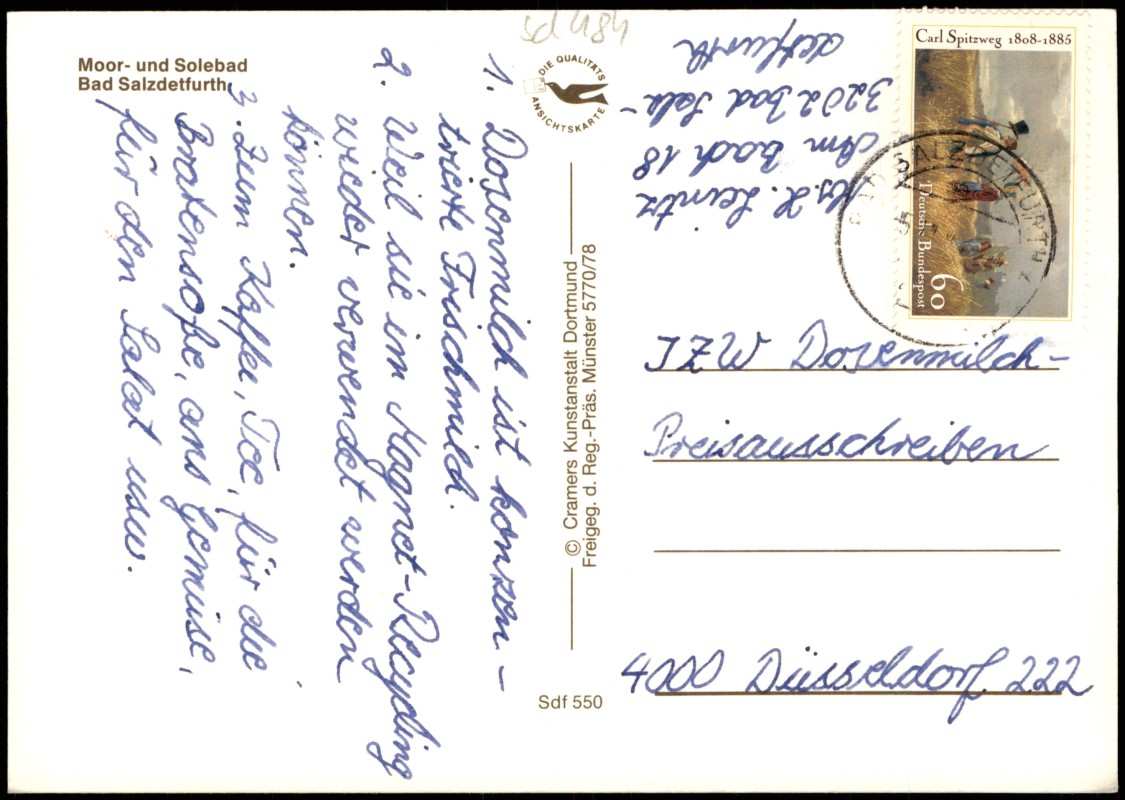 Moor- und Solebad
Bad Salzdetfurth
1. Dosenmilch ist konzen-
trierte Frischmilch.
2. Weil sie im Magnet-Recycling
wieder verwendet werden
können.
3. Zum Kaffee, Tee, für die
Bratensoße, ans Gemüse,
für den Salat usw.
DIE QUALITÄTS
ANSICHTSKARTE
© Cramers Kunstanstalt Dortmund
Freigeg. d. Reg.-Präs. Münster 5770/78
Sdf 550
Am Bach 18
3202 Bad Salz-
detfurth
Carl Spitzweg 1808-1885
Deutsche Bundespost
60
Dosenmilch-
Preisausschreiben
4000 Düsseldorf 222